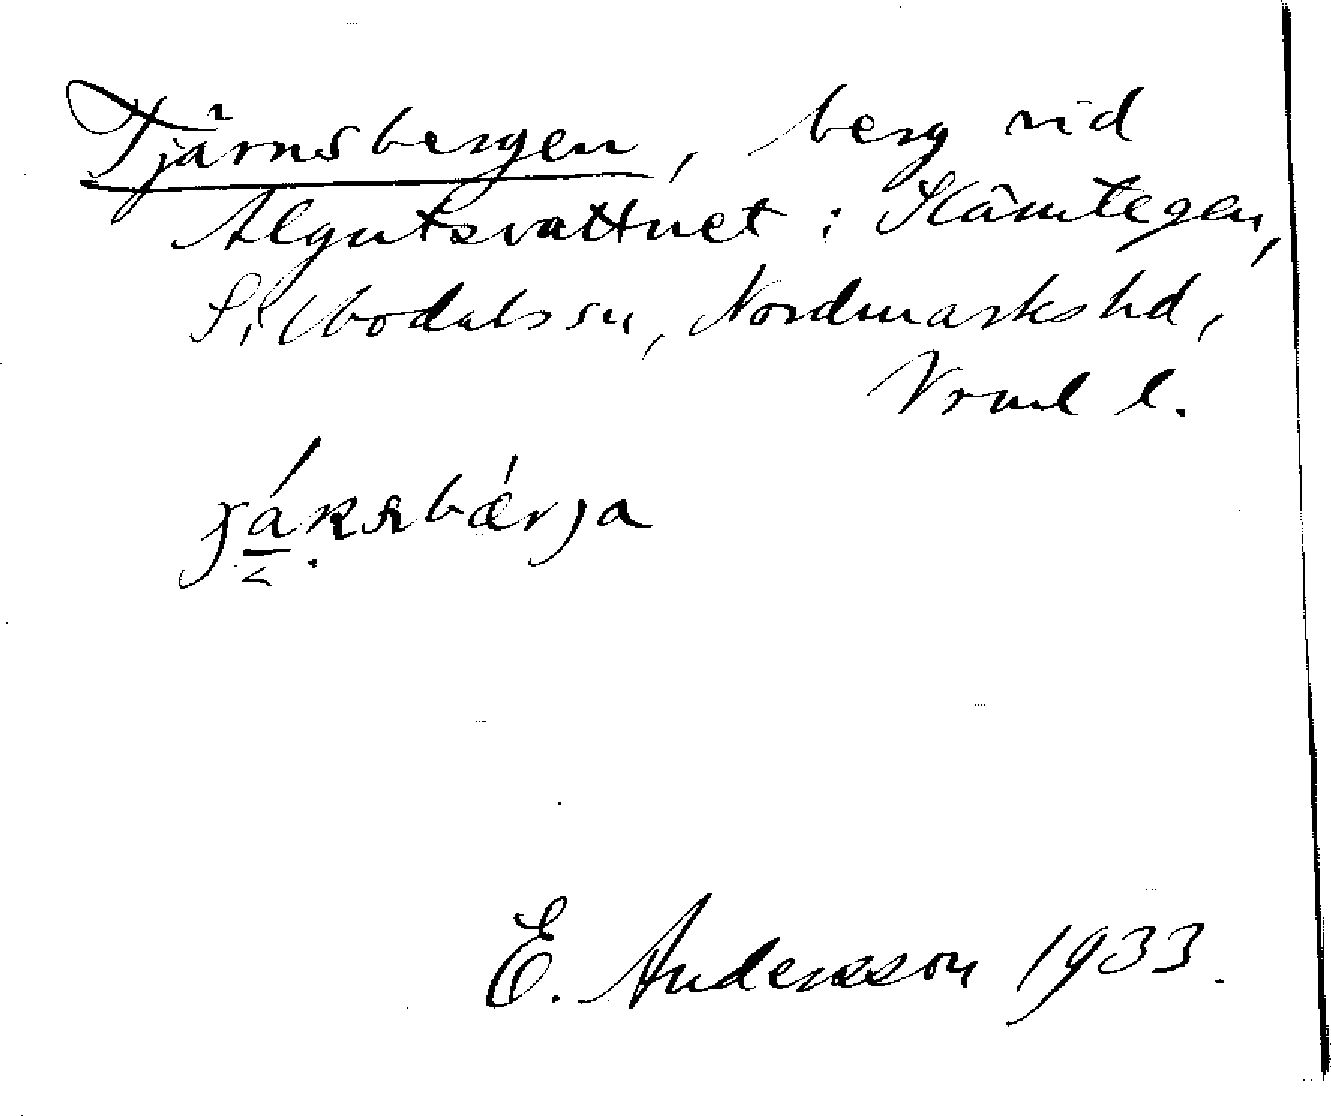 Tjärnsbergen, berg vid
Algutsvattnet i Kämtegen,
Silbodals sn, Nordmarks hd,
Vrml l.
E. Andersson 1933.